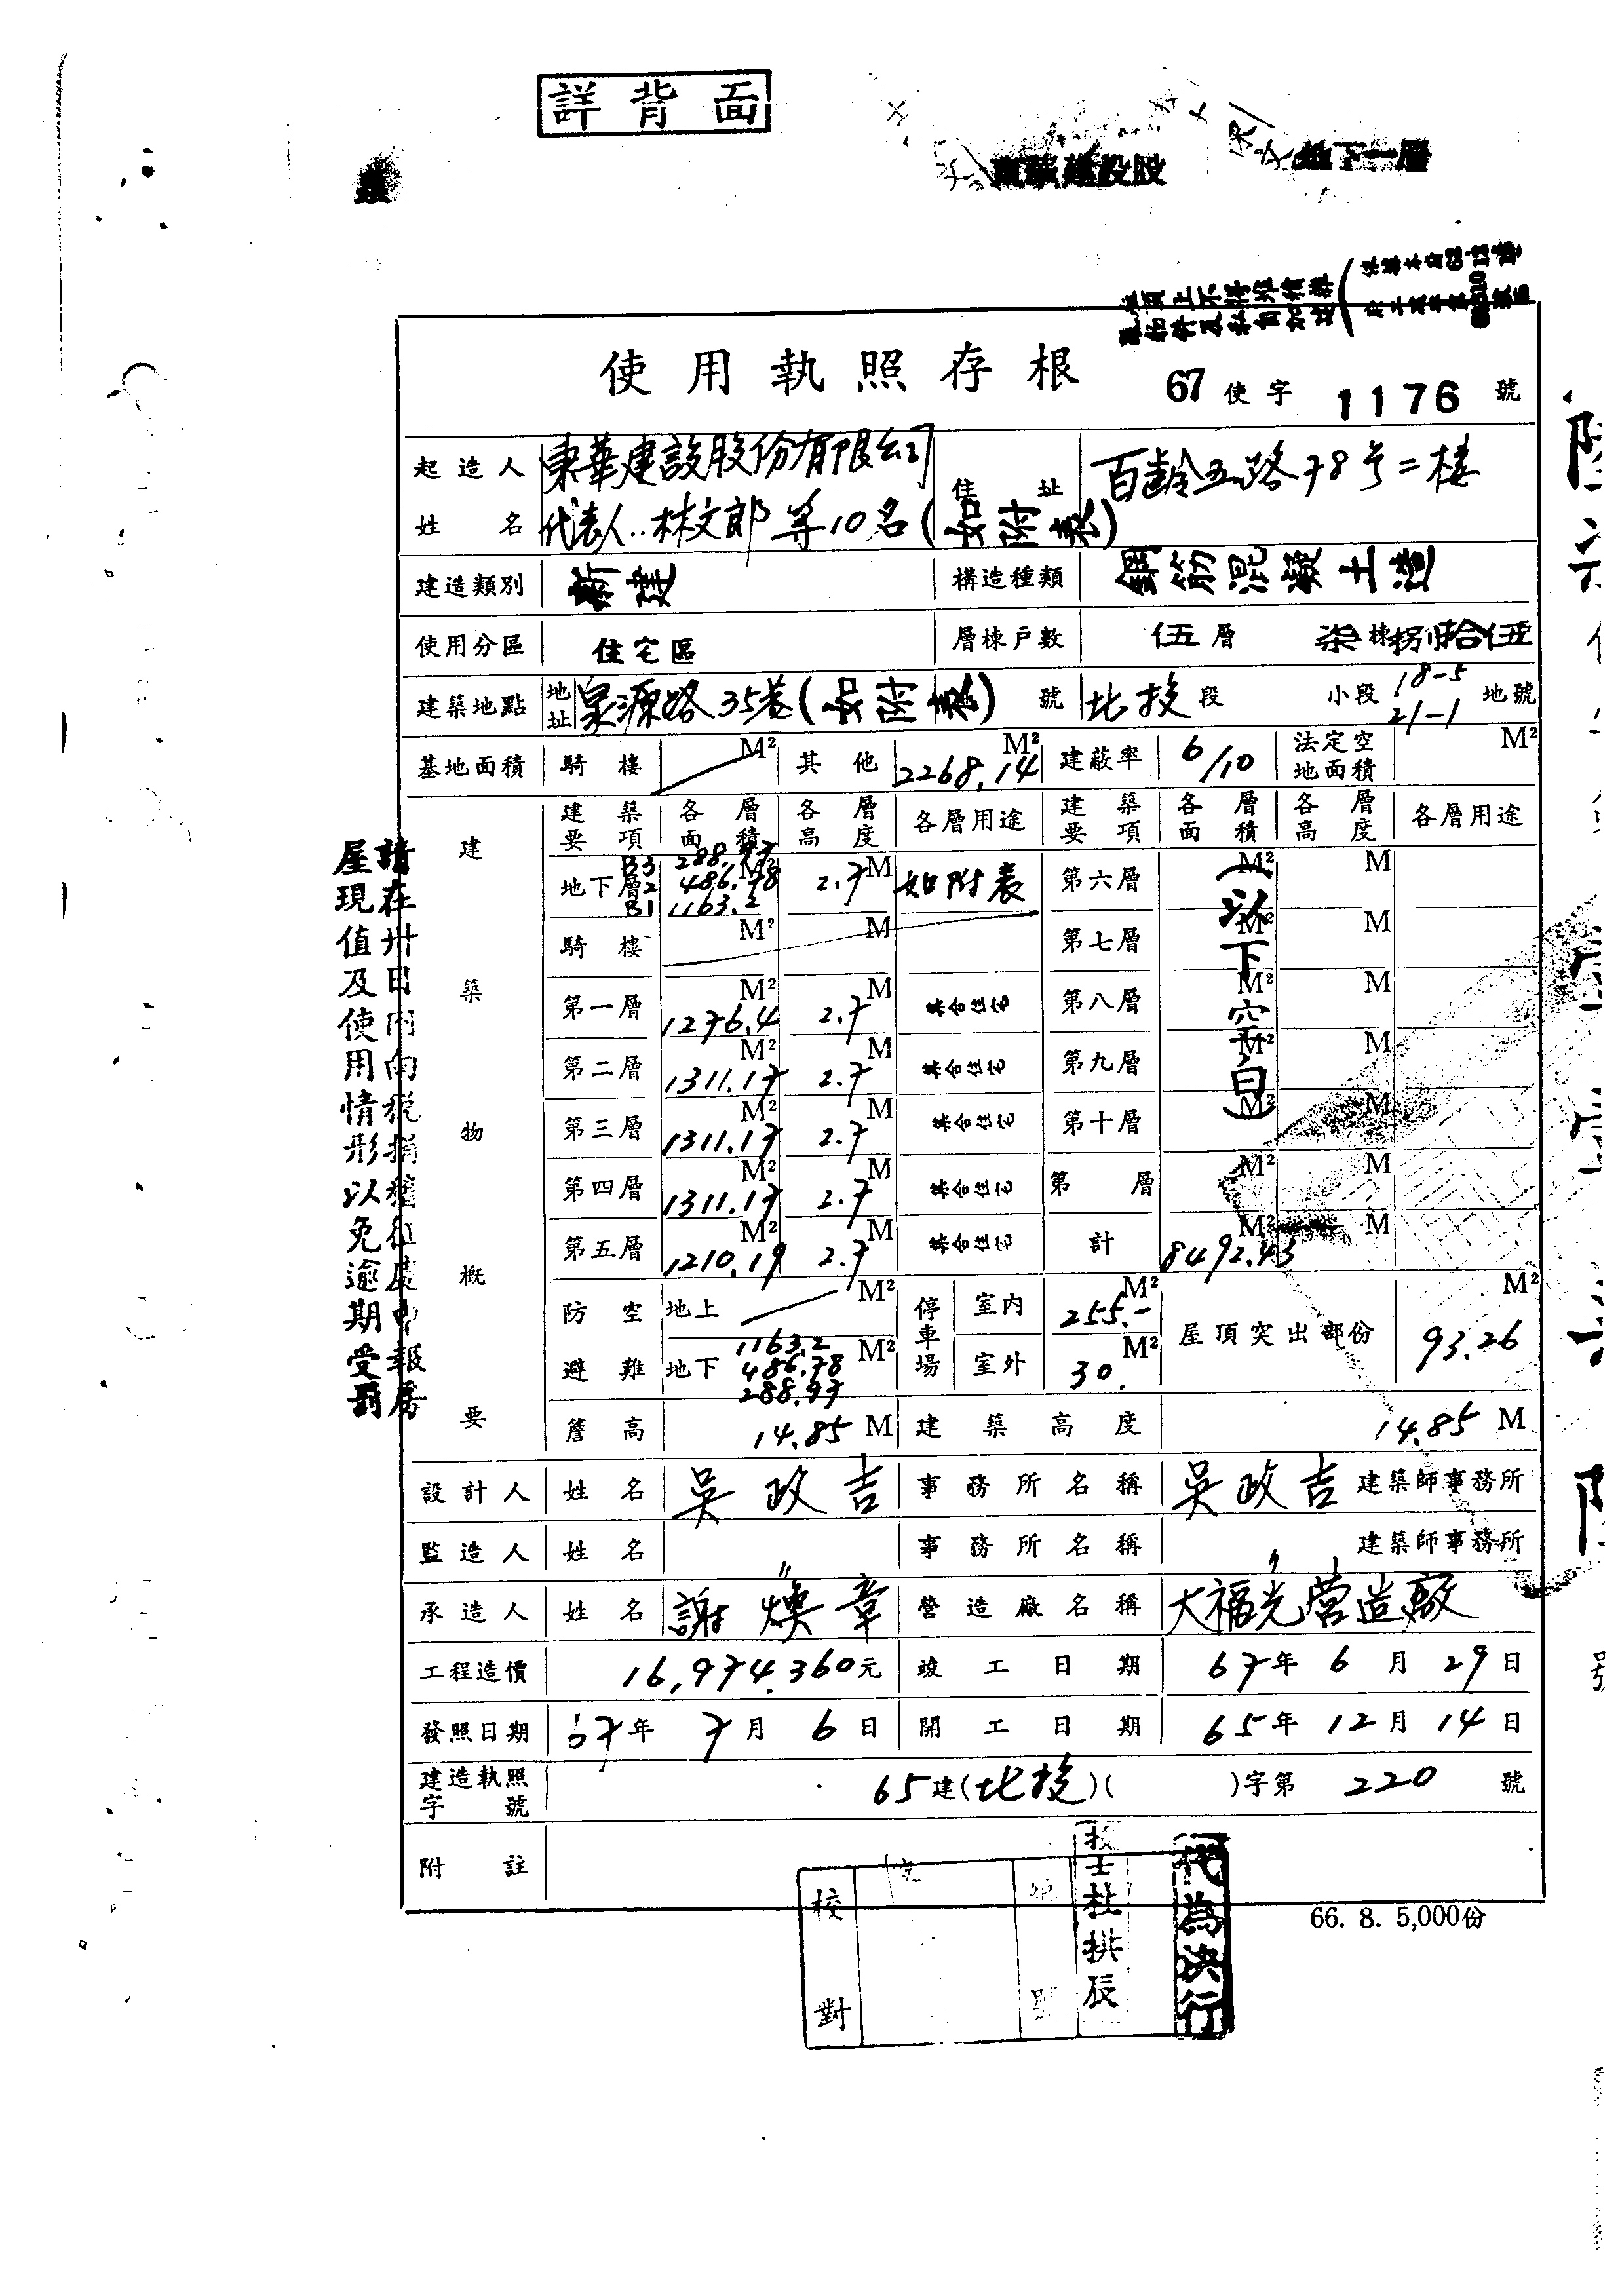 詳背面
使用執照存根 67使字 1176 號
起造人姓名 東華建設股份有限公司 代表人..林文郎等10名(如附表) 住址 百齡五路78号二樓
建造類別 新建 構造種類 鋼筋混凝土造
使用分區 住宅區 層棟戶數 伍層 柒棟捌拾伍
建築地點 地址 泉源路35巷(如附表)號 北投段 小段 18-5 21-1 地號
基地面積 騎樓 M² 其他 2268.14 M² 建蔽率 6/10 法定空地面積 M²
建築物概要
建築要項 各層面積 各層高度 各層用途 建築要項 各層面積 各層高度 各層用途
地下層 B3 288.97 2 486.78 B1 1163.2 M² 2.7 M 如附表 第六層 M² M
騎樓 M² M 第七層 M² M
第一層 1276.4 M² 2.7 M 集合住宅 第八層 M² M
第二層 1311.17 M² 2.7 M 集合住宅 第九層 M² M
第三層 1311.17 M² 2.7 M 集合住宅 第十層 M² M
第四層 1311.17 M² 2.7 M 集合住宅 第 層 M² M
第五層 1210.19 M² 2.7 M 集合住宅 計 8492.43 M² M
(以下空白)
防空避難 地上 M² 停車場 室內 255.- M² 屋頂突出部份 93.26 M²
地下 1163.2 486.78 288.97 M² 室外 30. M²
簷高 14.85 M 建築高度 14.85 M
設計人 姓名 吳政吉 事務所名稱 吳政吉 建築師事務所
監造人 姓名 〃 事務所名稱 〃 建築師事務所
承造人 姓名 謝煥章 營造廠名稱 大福光营造廠
工程造價 16,974,360元 竣工日期 67年6月29日
發照日期 67年7月6日 開工日期 65年12月14日
建造執照字號 65建(北投)( )字第 220 號
附註
66. 8. 5,000份
請在卅日內向稅捐稽征處申報房
屋現值及使用情形以免逾期受罰
校對
技士杜拱辰
代為決行